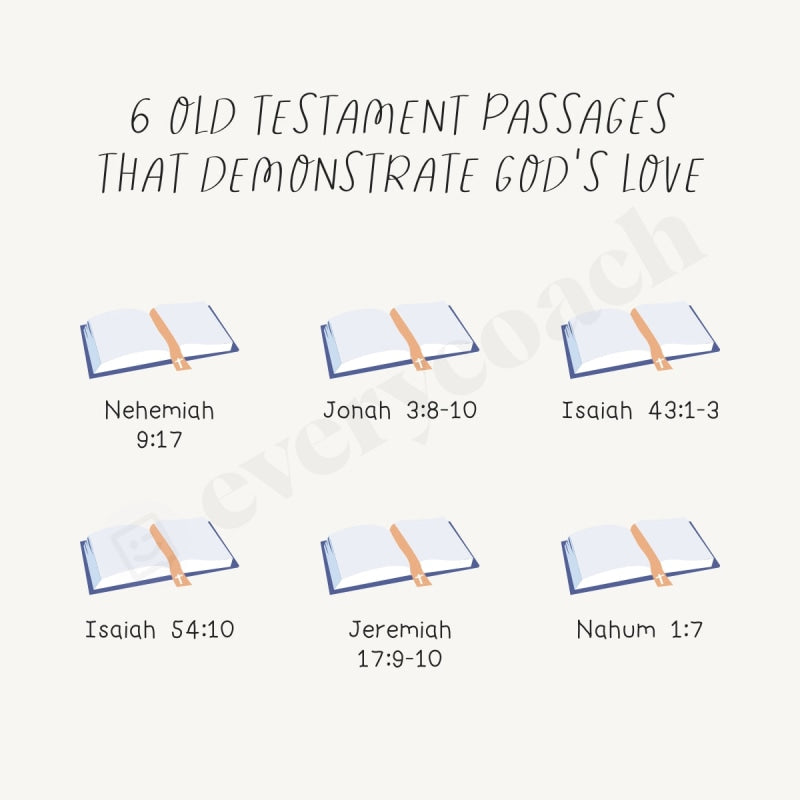 6 OLD TESTAMENT PASSAGES
THAT DEMONSTRATE GOD'S LOVE
everycoach
Nehemiah
9:17
Jonah 3:8-10
Isaiah 43:1-3
Isaiah 54:10
Jeremiah
17:9-10
Nahum 1:7